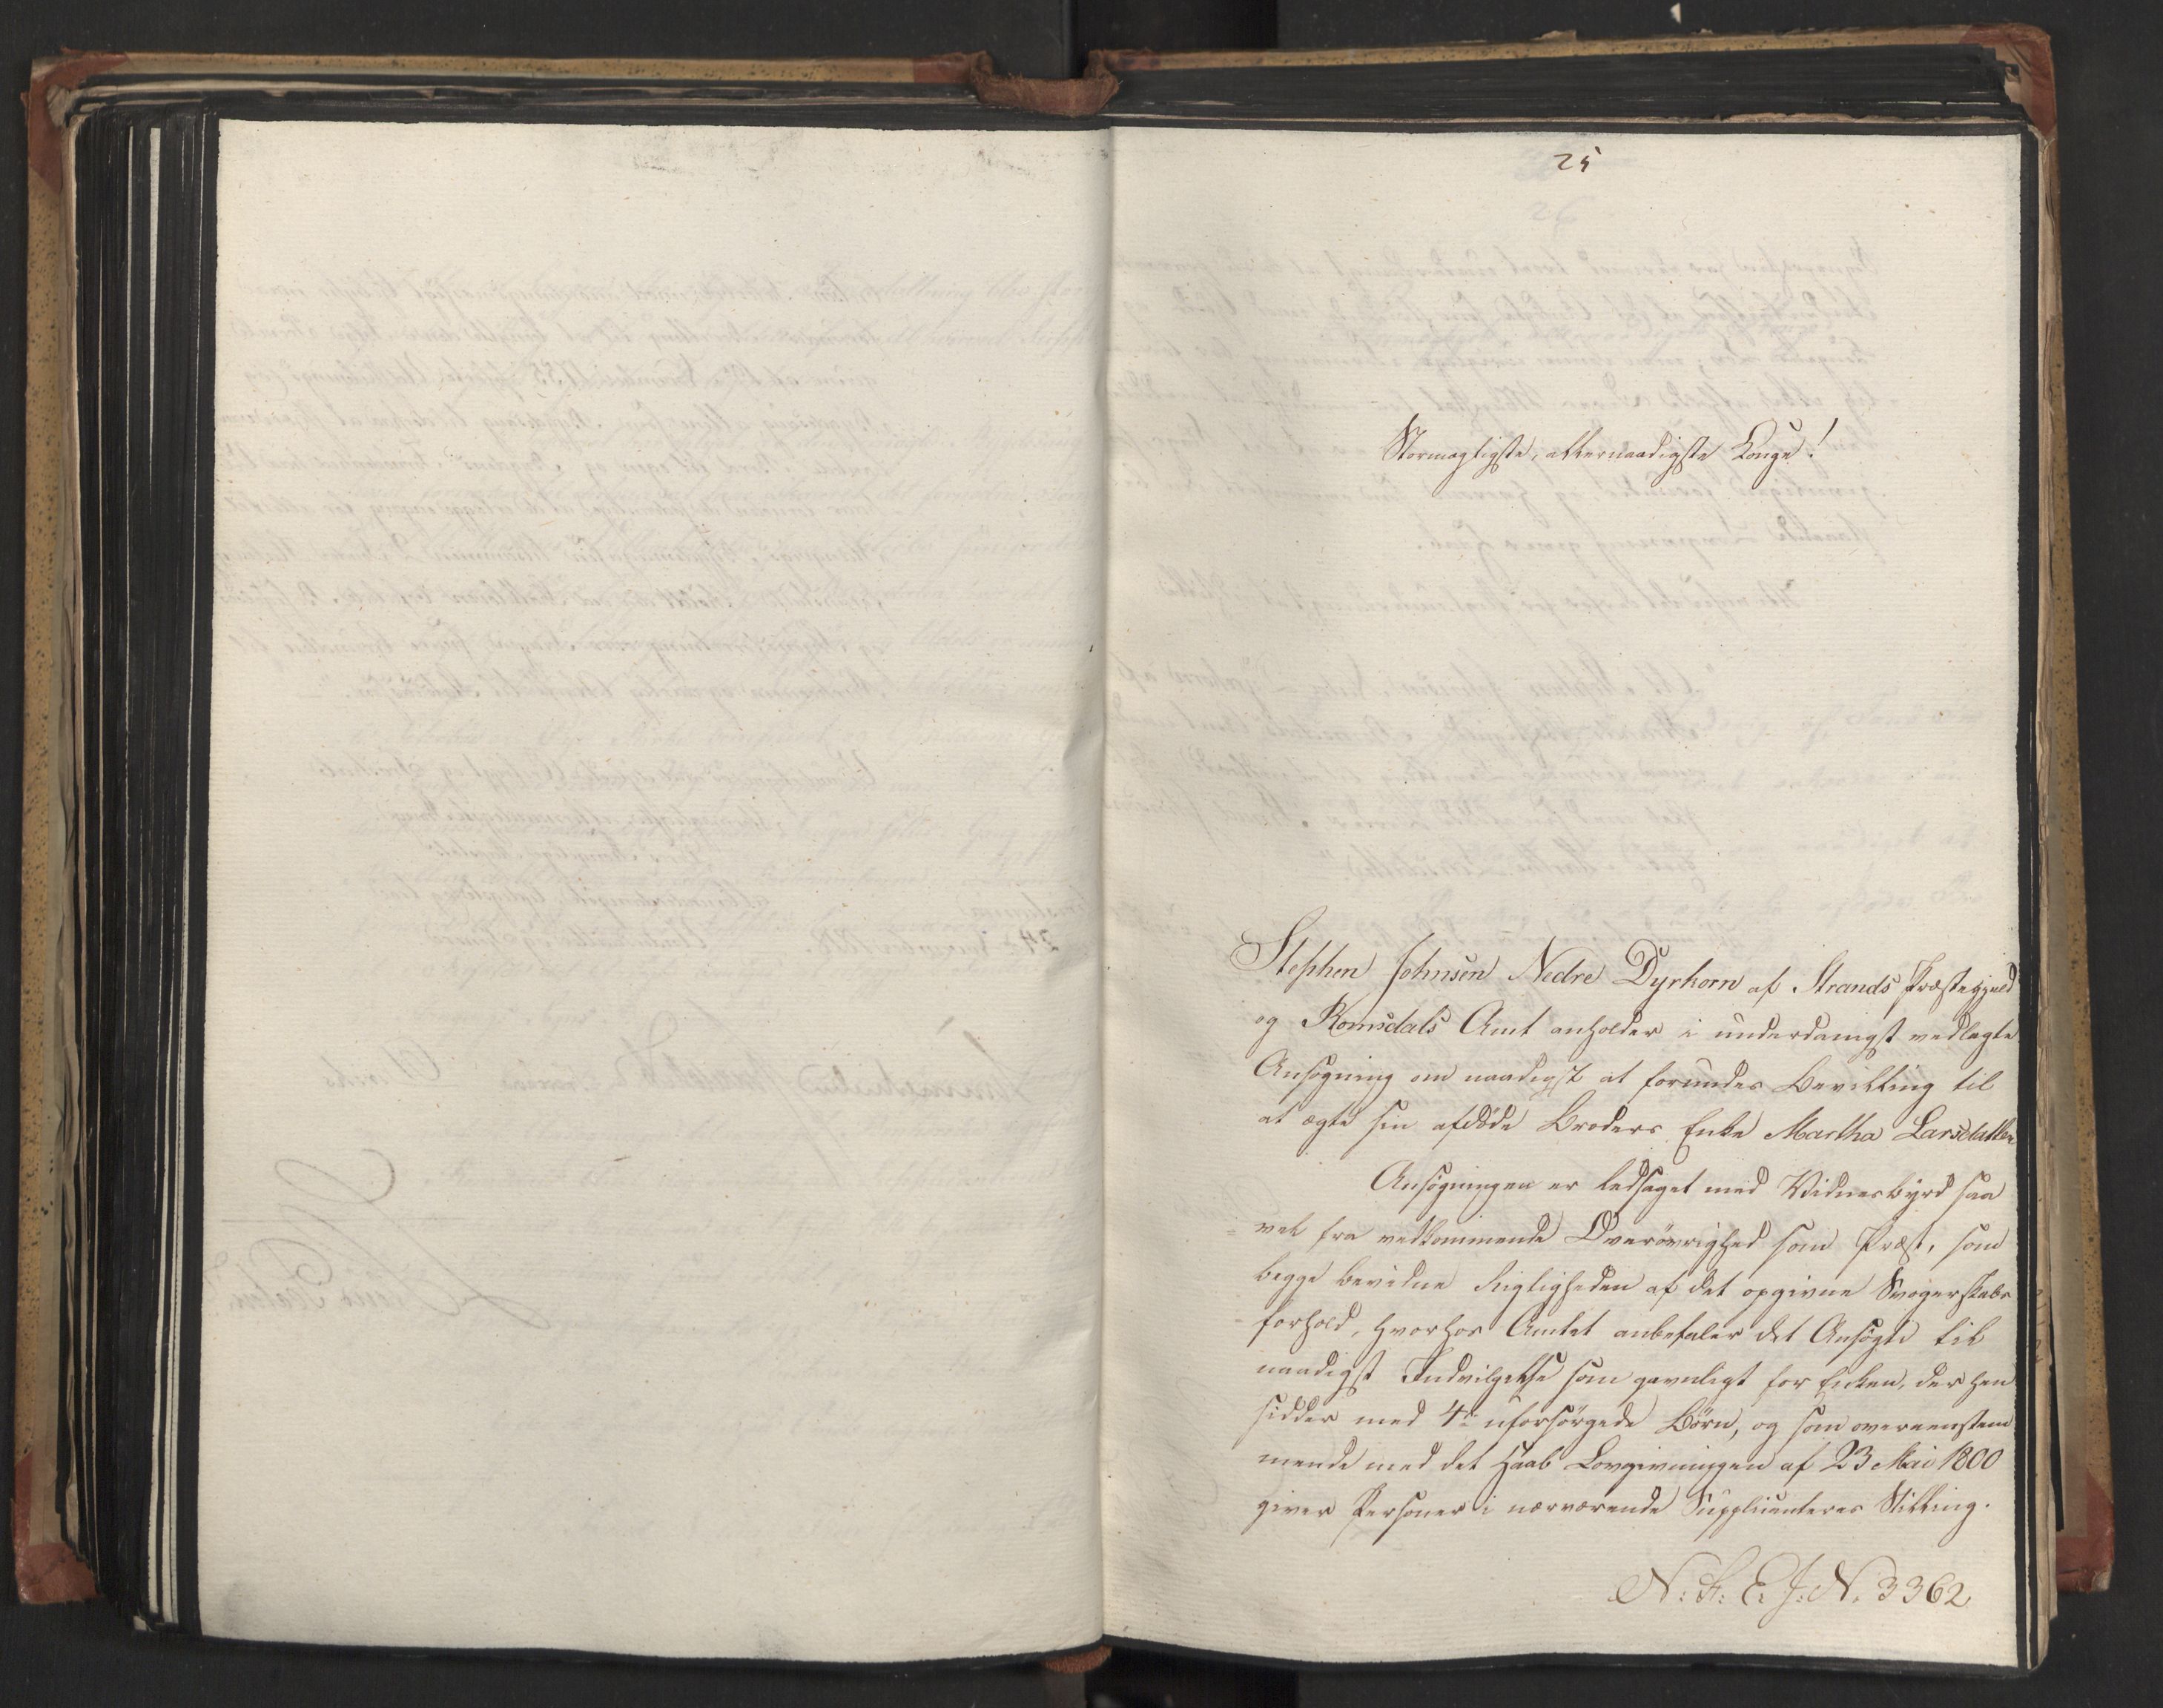 25
Stormægtigste, allernaadigste Konge!
Stephen Johnsen Nedre Dyrkorn af Strands Præstegjeld
og Romsdals Amt anholder i underdanigst vedlagte
Ansøgning om naadigst at forundes Bevilling til
at ægte sin afdøde Broders Enke Martha Larsdatter
Ansøgningen er ledsaget med Vidnesbyrd saa
vel fra vedkommende Overøvrighed som Præst, som
begge bevidne Rigtigheden af det opgivne Svogerskabs
forhold, hvorhos Amtet anbefaler det Ansøgte til
naadigst Indvilgelse som gavnligt for Enken, der hen
sidder med 4r uforsørgede Børn, og som overeenstem
mende med det Haab Lovgivningen af 23 Mai 1800
giver Personer i nærværende Supplicanteres Stilling.
N: R: E. J: N. 3362